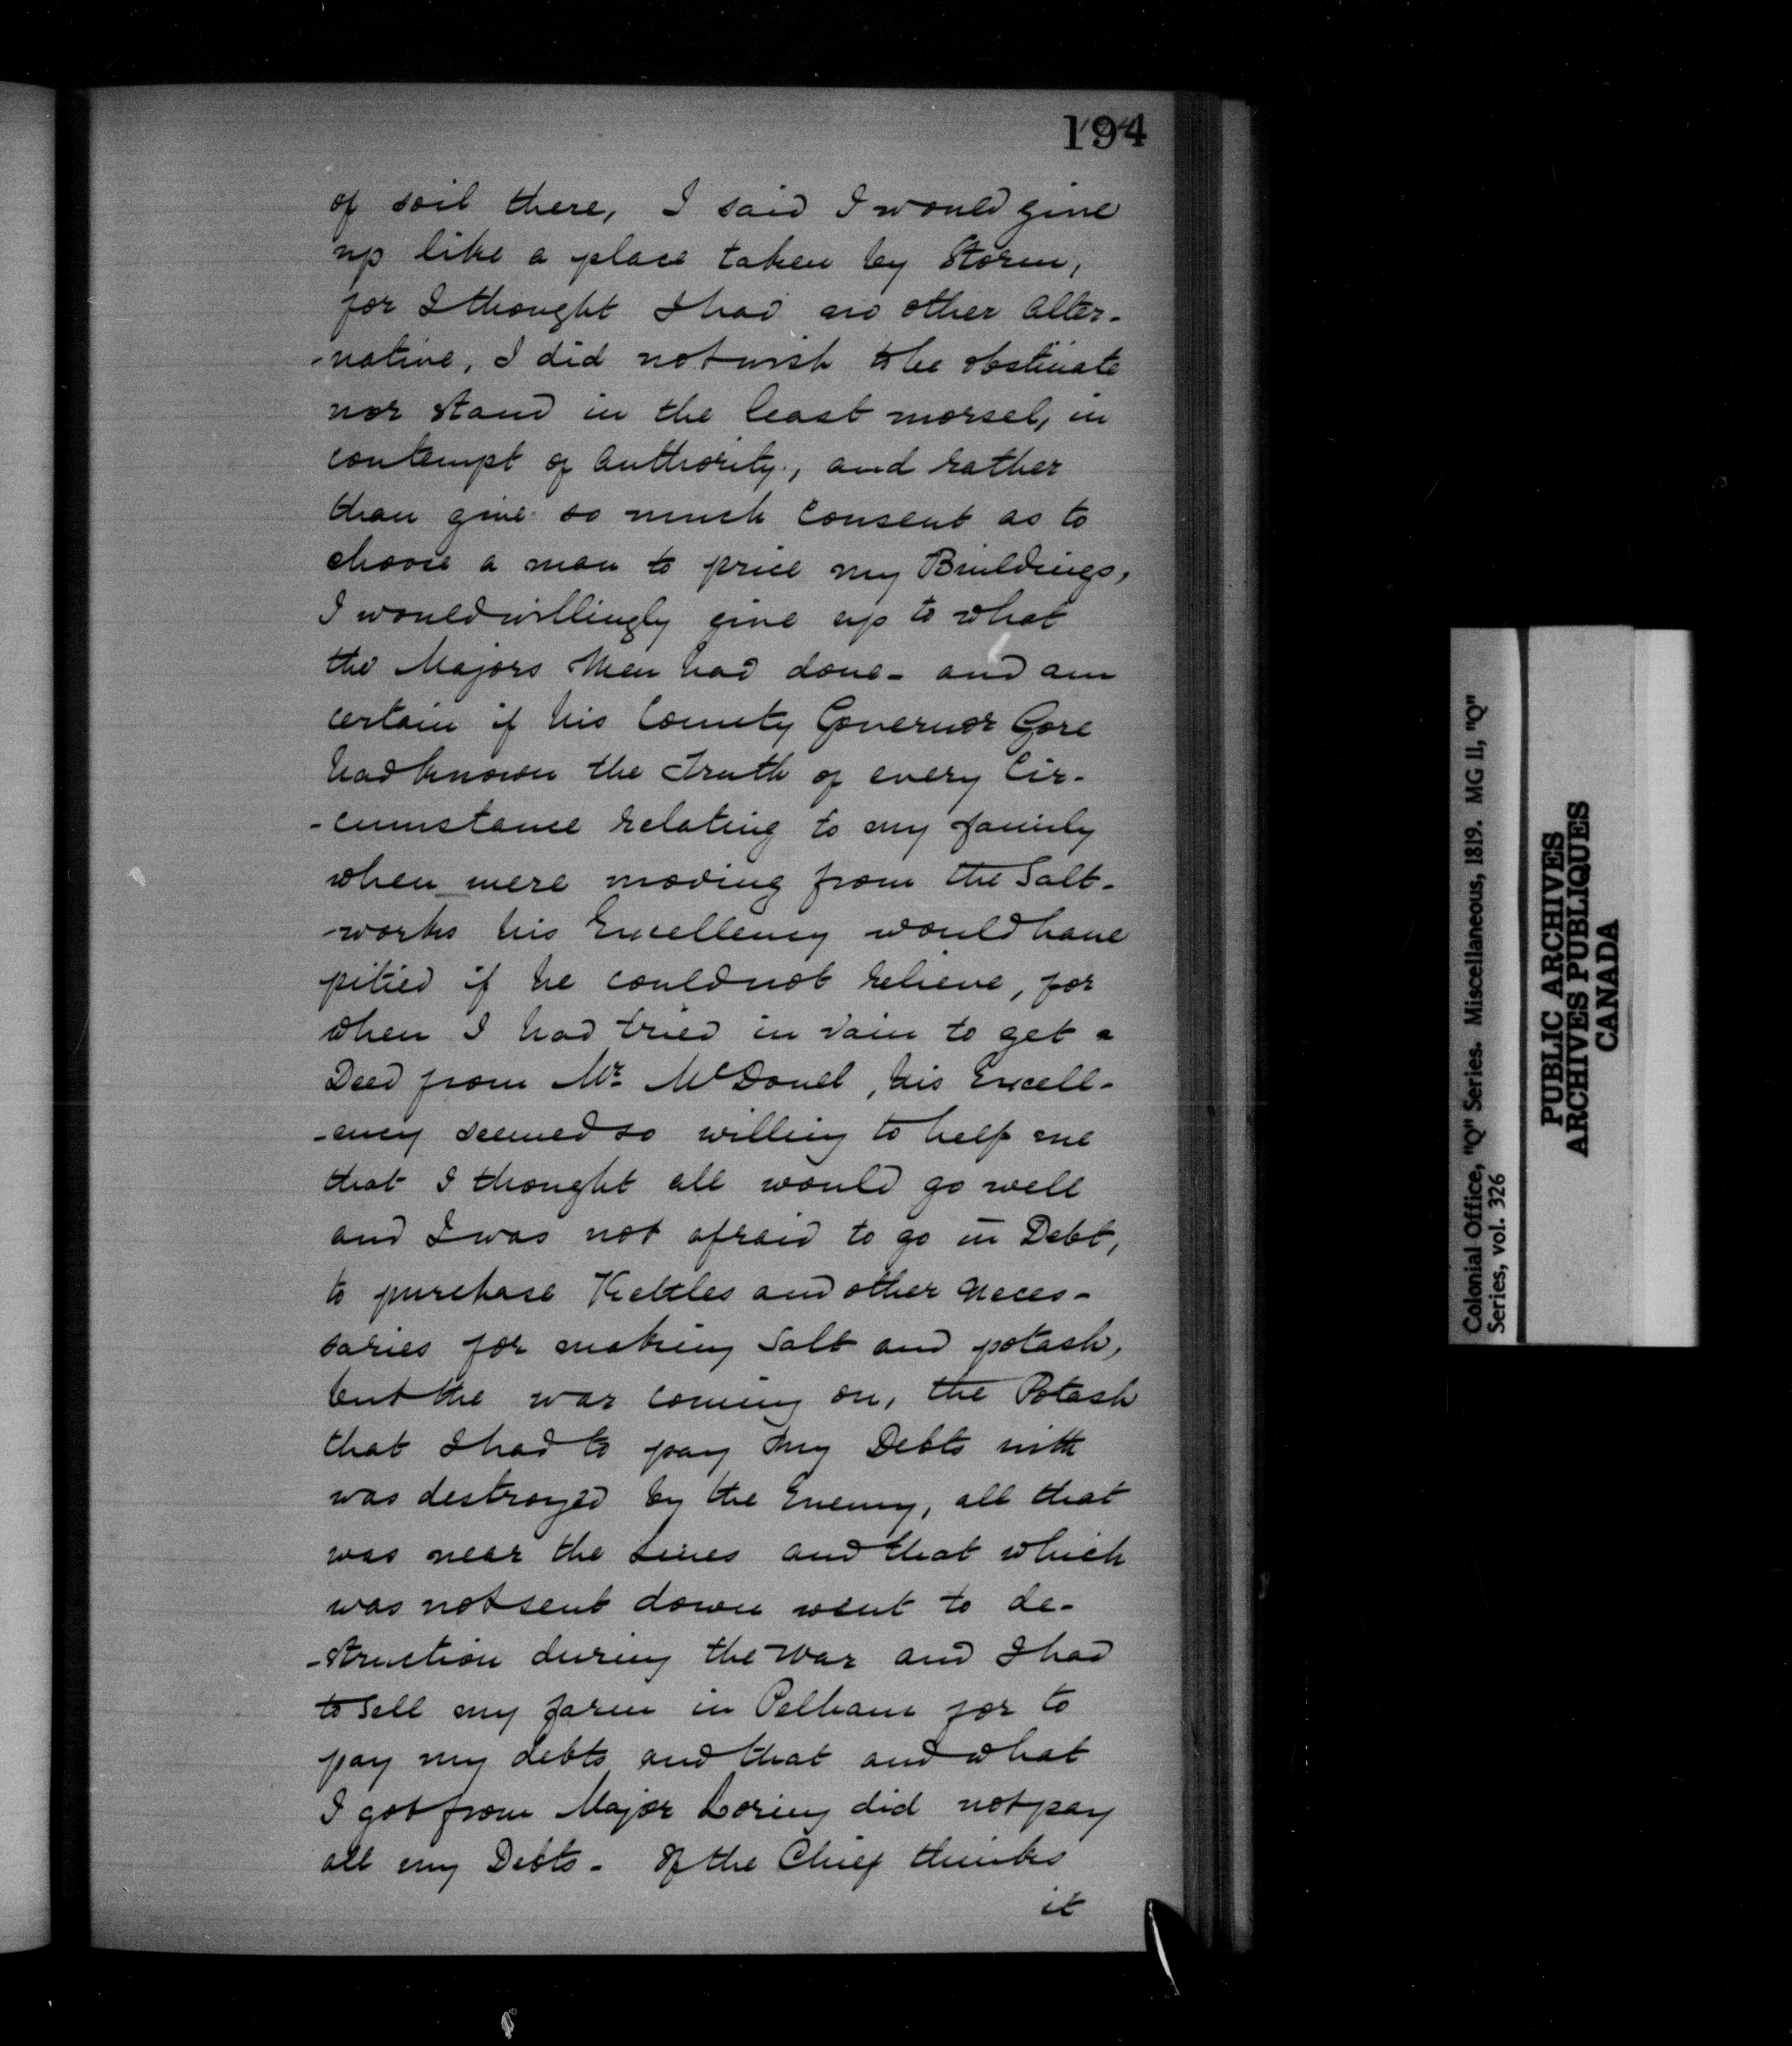 194
of soil there, I said I would give
up like a place taken by Storm,
for I thought I had no other alter-
-native, I did not wish to be obstinate
nor stand in the least morsel, in
contempt of authority, and rather
than give so much consent as to
choose a man to price my Buildings,
I would willingly give up to what
the Majors Men had done - and am
certain if his County Governor Gore
had known the Truth of every Cir-
-cumstance relating to my family
when were moving from the Salt-
-works his Excellency would have
pitied if he could not relieve, for
when I had tried in vain to get a
Deed from Mr. McDonel, his Excell-
-ency seemed so willing to help me
that I thought all would go well
and I was not afraid to go in Debt,
to purchase Kettles and other neces-
saries for making Salt and potash,
but the war coming on, the Potash
that I had to pay my Debts with
was destroyed by the Enemy, all that
was near the Lines and that which
was not sent down went to de-
-struction during the War and I had
to sell my farm in Pelham for to
pay my debts and that and what
I got from Major Loring did not pay
all my Debts - If the Chief thinks
it
Colonial Office, "Q" Series. Miscellaneous, 1819. MG 11, "Q"
Series, vol. 326
PUBLIC ARCHIVES
ARCHIVES PUBLIQUES
CANADA